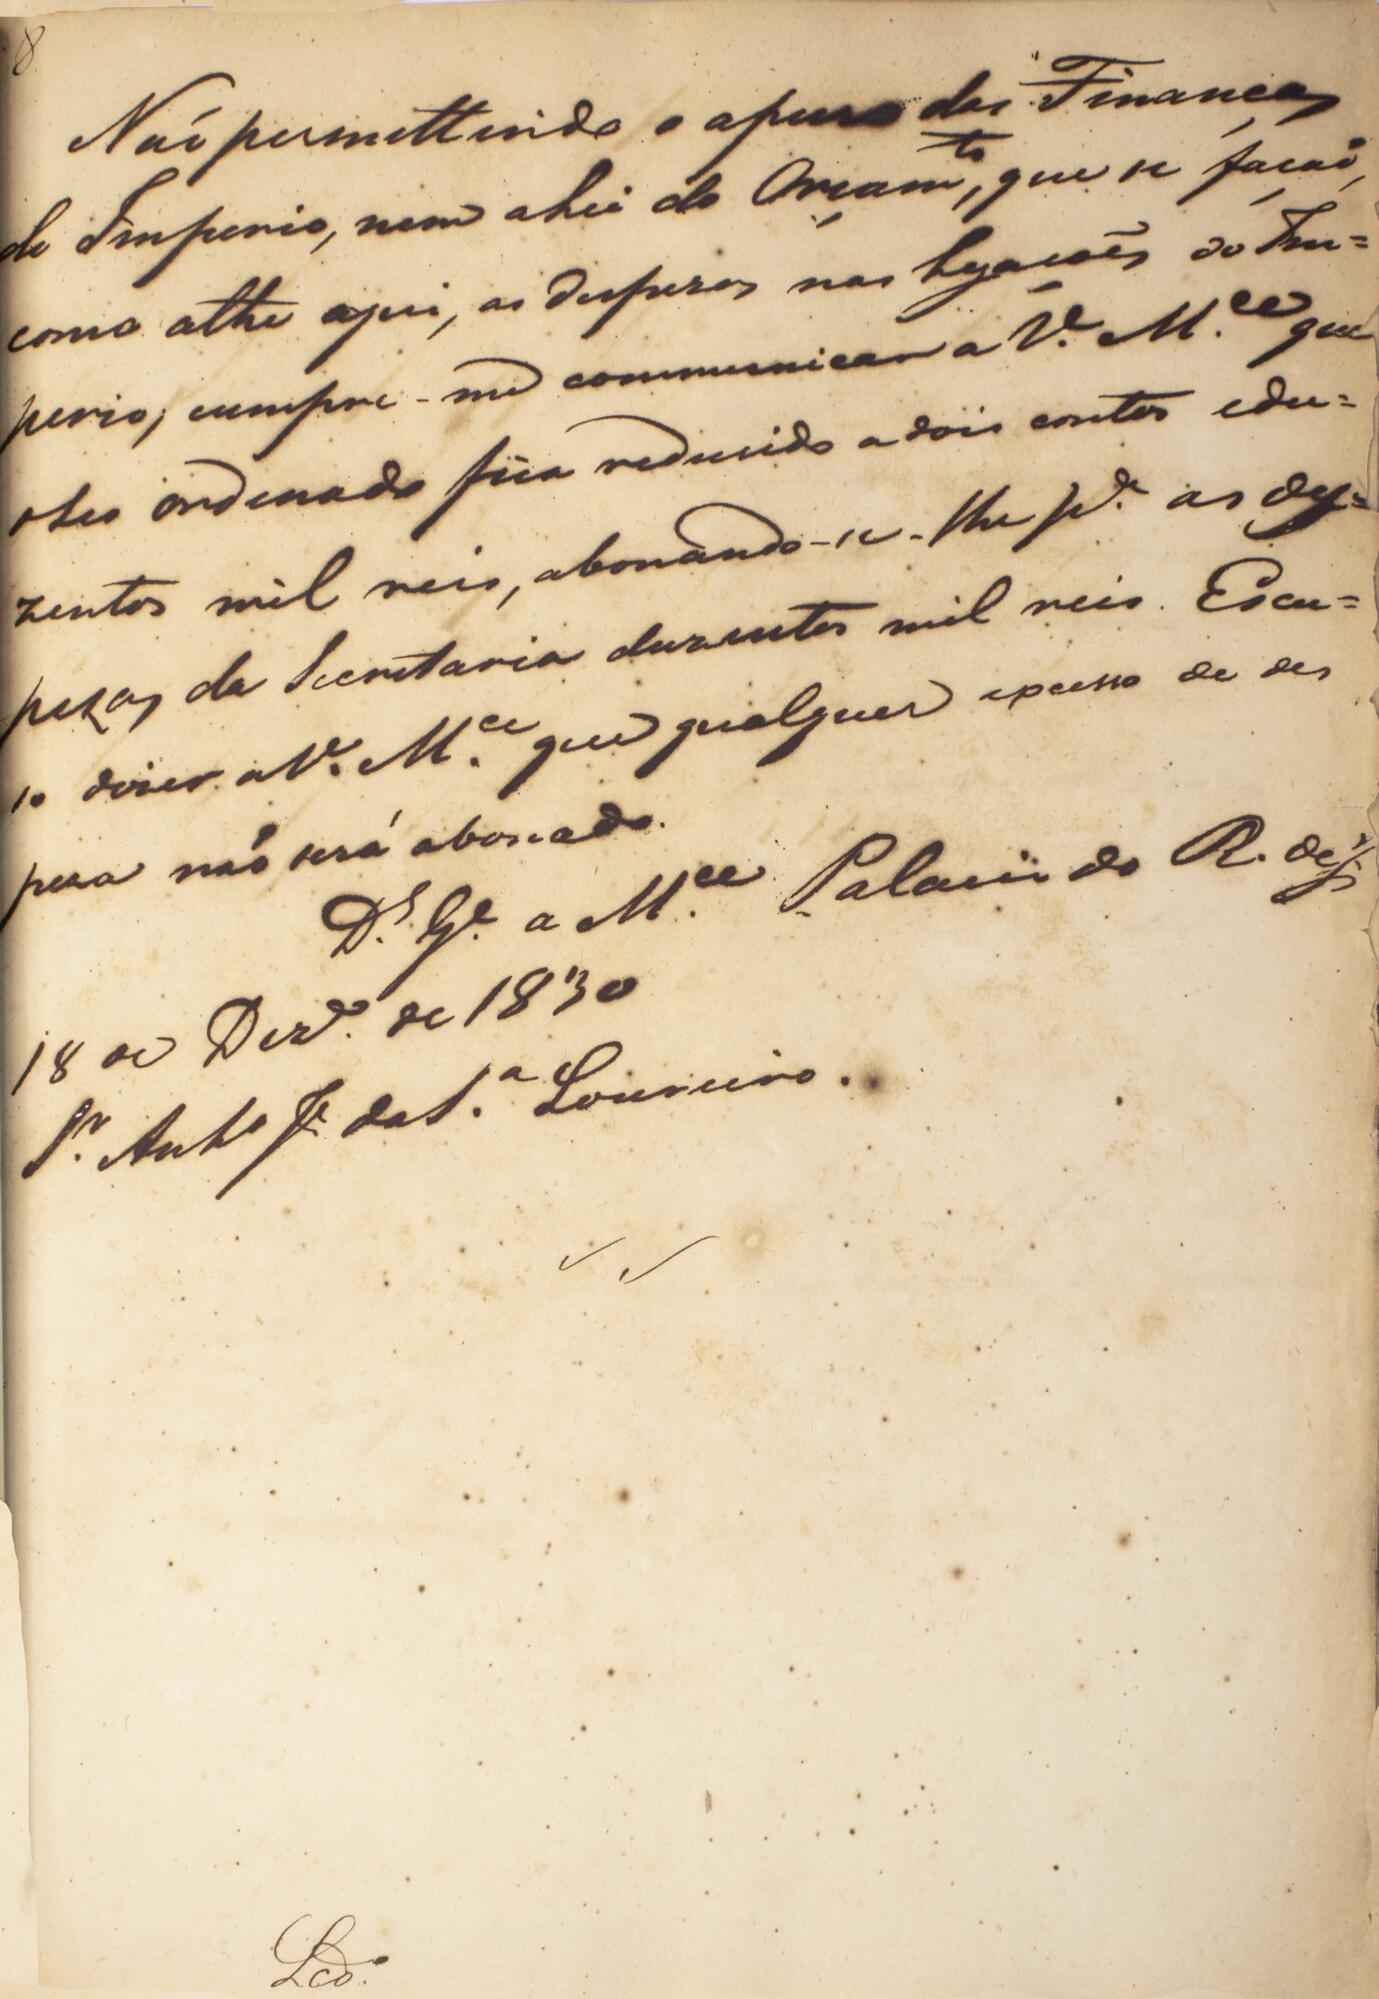 8
Naõ permittindo o apuro das Finanças
do Imperio, nem a Lei do Orcam.to, que se façaõ,
como athe aqui, as despezas nas Legacoẽs do Im=
perio, cumpre-me communicar a V.e M.ce que
o Seu Ordenado fica redusido a dois contos e du=
zentos mil reis, abonando-se-lhe p.a as des=
pezas da Secretaria duzentos mil reis. Escu=
so diser a V.e M.ce que qualquer excesso de des
peza naõ será abonado.
D.s G.e a M.ce Palacio do R. de J.ro
18 de Dezr.o de 1830
S.r Ant.o J.e da S.a Loureiro.
Lcd.o